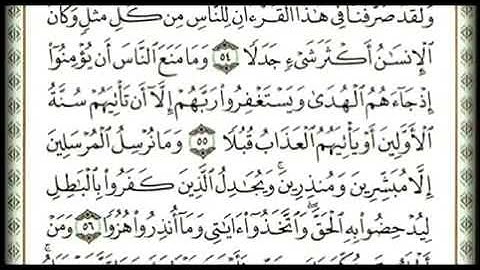 وَلَقَدْ صَرَّفْنَا فِى هَٰذَا ٱلْقُرْءَانِ لِلنَّاسِ مِن كُلِّ مَثَلٍ وَكَانَ
ٱلْإِنسَٰنُ أَكْثَرَ شَىْءٍ جَدَلًا ٥٤ وَمَا مَنَعَ ٱلنَّاسَ أَن يُؤْمِنُوٓا۟
إِذْ جَآءَهُمُ ٱلْهُدَىٰ وَيَسْتَغْفِرُوا۟ رَبَّهُمْ إِلَّآ أَن تَأْتِيَهُمْ سُنَّةُ
ٱلْأَوَّلِينَ أَوْ يَأْتِيَهُمُ ٱلْعَذَابُ قُبُلًا ٥٥ وَمَا نُرْسِلُ ٱلْمُرْسَلِينَ
إِلَّا مُبَشِّرِينَ وَمُنذِرِينَ ۚ وَيُجَٰدِلُ ٱلَّذِينَ كَفَرُوا۟ بِٱلْبَٰطِلِ
لِيُدْحِضُوا۟ بِهِ ٱلْحَقَّ ۖ وَٱتَّخَذُوٓا۟ ءَايَٰتِى وَمَآ أُنذِرُوا۟ هُزُوًا ٥٦ وَمَنْ